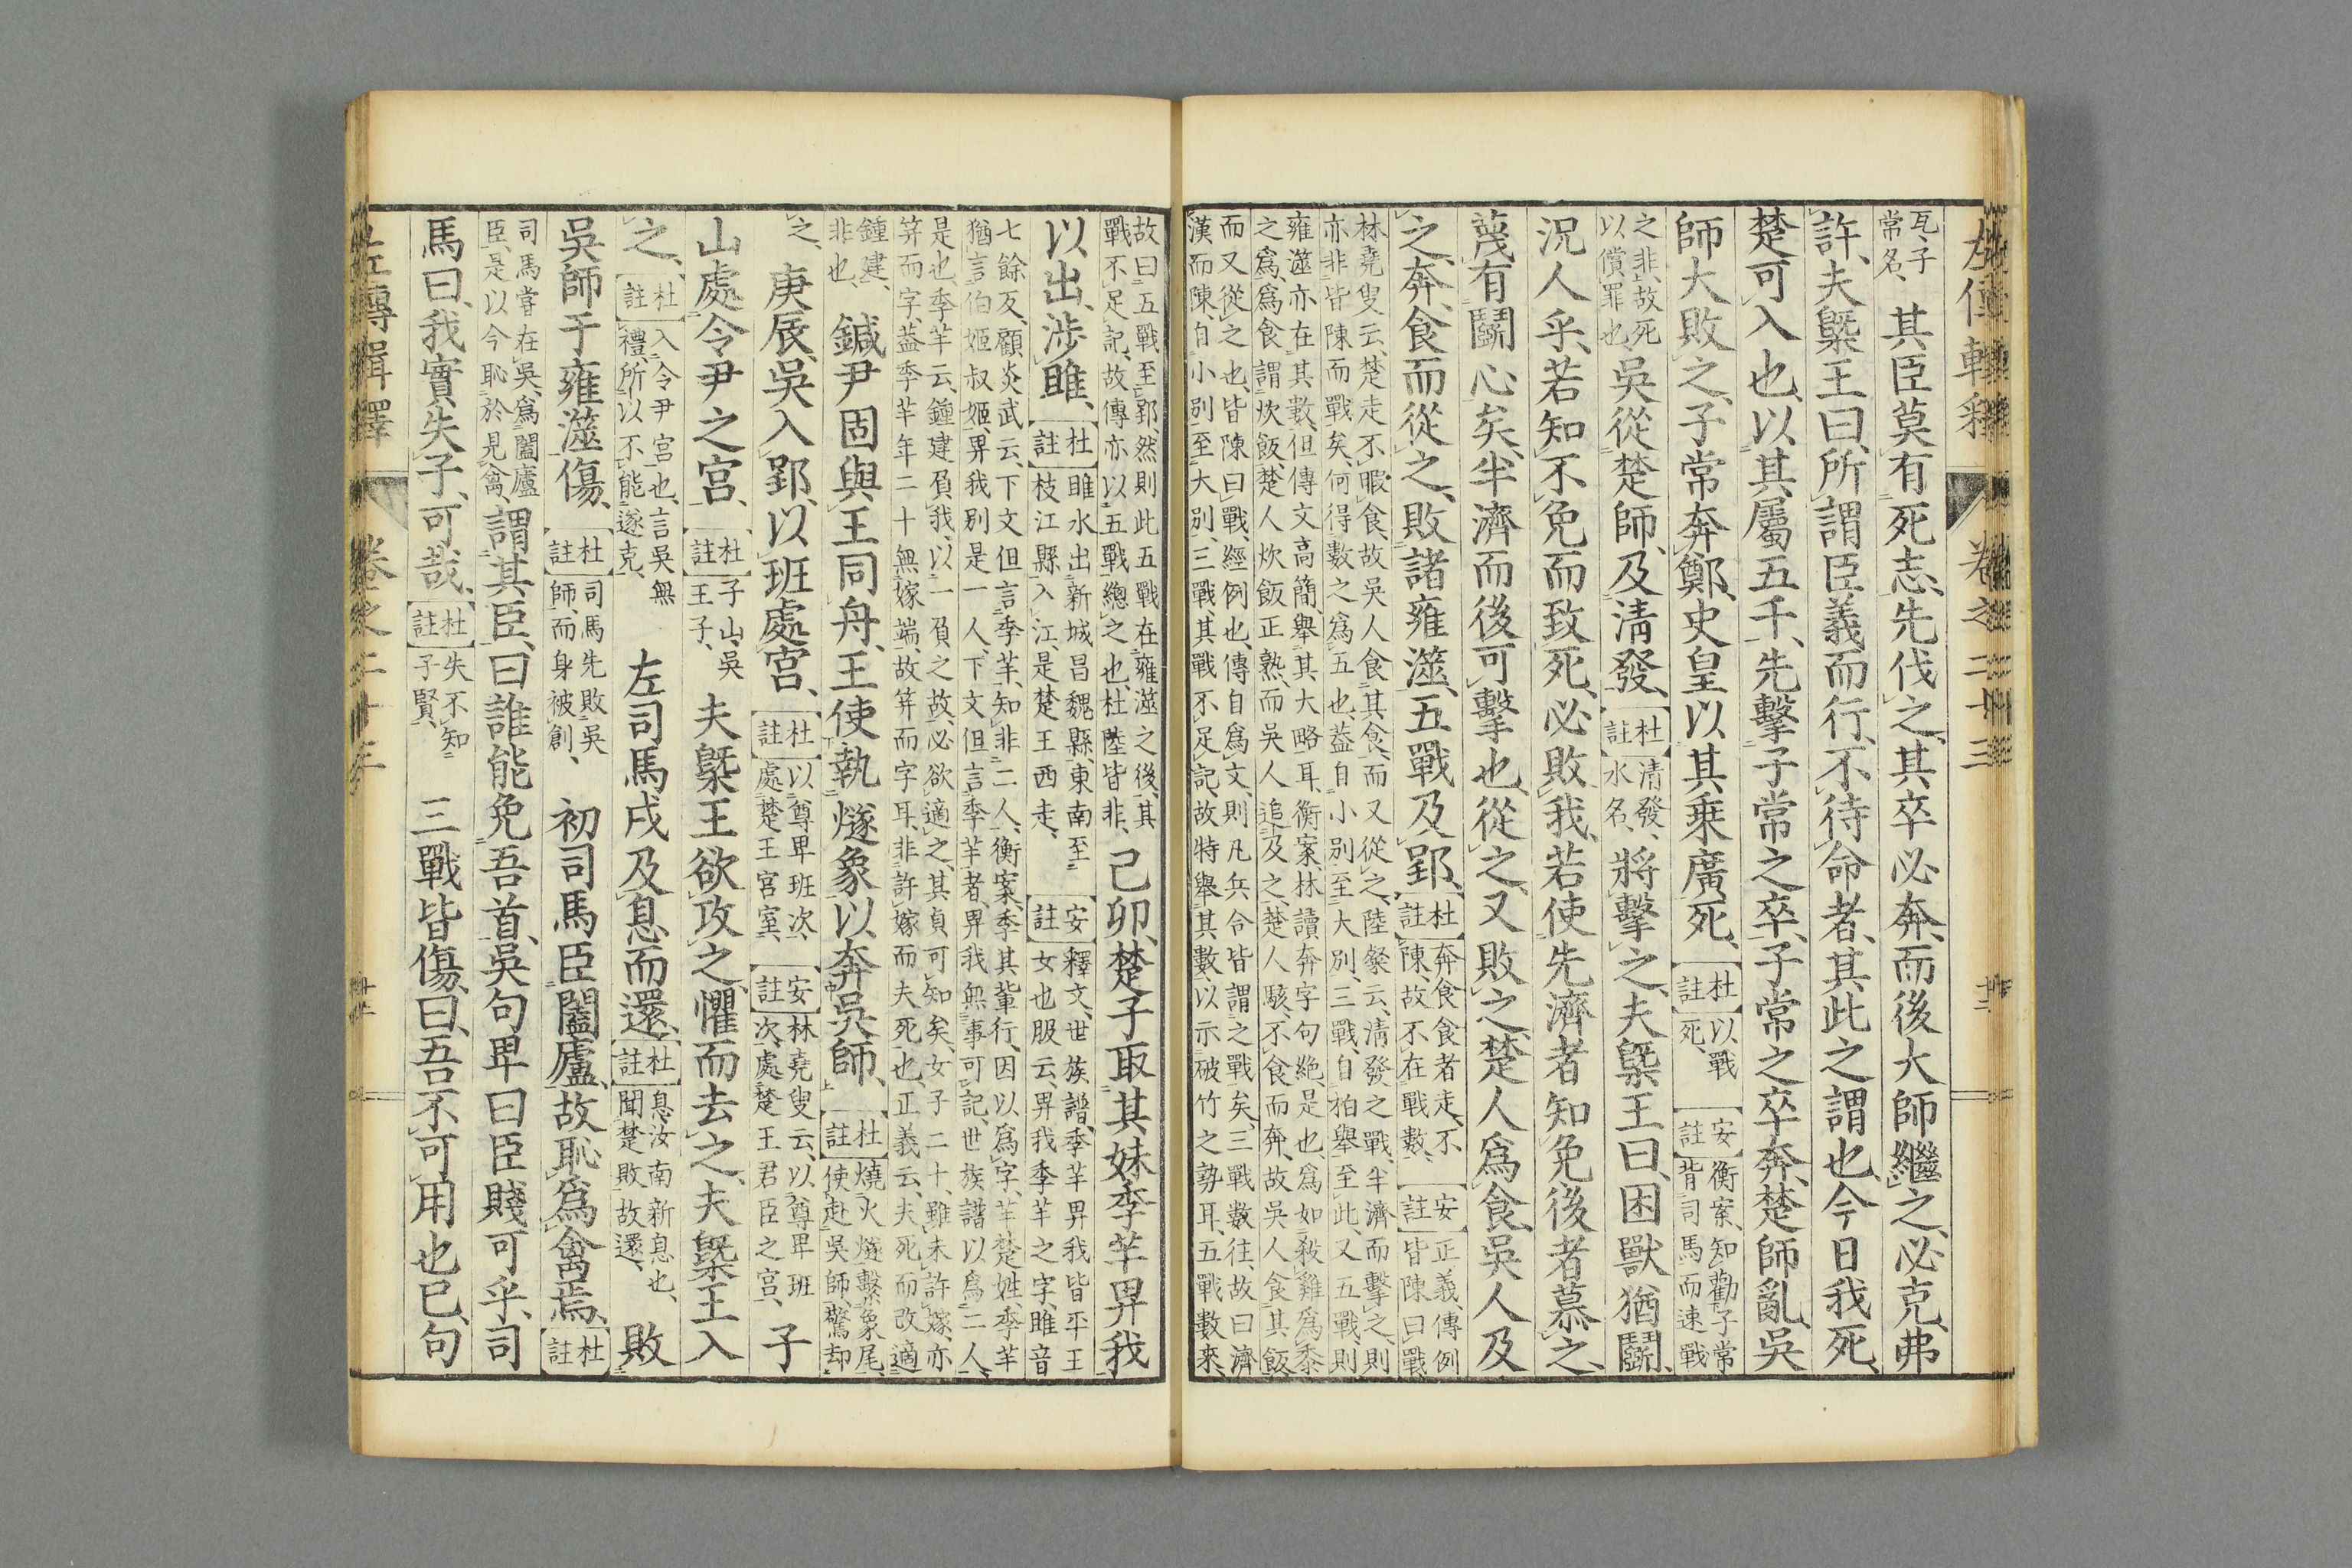 左傳輯釋 卷之二十三 十二
瓦子常名、其臣莫有死志、先伐之、其卒必奔、而後大師繼之、必克、弗
許、夫槩王曰、所謂臣義而行、不待命者、其此之謂也、今日我死、
楚可入也、以其屬五千、先擊子常之卒、子常之卒奔、楚師亂、吳
師大敗之、子常奔鄭、史皇以其乘廣死、杜註以戰死、安註衡案、知勸子常背司馬而速戰
之非、故死以償罪也、吳從楚師、及淸發、杜註淸發、水名、將擊之、夫槩王曰、困獸猶鬭、
況人乎、若知不免而致死、必敗我、若使先濟者知免、後者慕之、
蔑有鬭心矣、半濟而後可擊也、從之、又敗之、楚人爲食、吳人及
之、奔、食而從之、敗諸雍澨、五戰及郢、杜註奔食、食者走、不陳、故不在戰數、安註正義、傳例皆陳曰戰、
林堯叟云、楚走不暇食、故吳人食其食、而又從之、陸粲云、淸發之戰、半濟而擊之、則
亦非皆陳而戰矣、何得數之爲五也、蓋自小別至大別、三戰、自柏舉至此、又五戰、則
雍澨亦在其數、但傳文高簡、舉其大略耳、衡案、林讀奔字句絕、是也、爲如殺雞爲黍
之爲、爲食謂炊飯、楚人炊飯正熟、而吳人追及之、楚人駭、不食而奔、故吳人食其飯
而又從之也、皆陳曰戰、經例也、傳自爲文、則凡兵合皆謂之戰矣、三戰數往、故曰濟
漢而陳、自小別至大別、三戰其戰不足記、故特舉其數、以示破竹之勢耳、五戰數來、
故曰五戰至郢、然則此五戰在雍澨之後、其
戰不足記、故傳亦以五戰總之也、杜陸皆非、己卯、楚子取其妹季芈畀我
以出、涉雎、杜註雎水出新城昌魏縣、東南至枝江縣入江、是楚王西走、安註釋文、世族譜、季芈畀我皆平王女也、服云、畀我季芈之字、雎音
七餘反、顧炎武云、下文但言季芈、知非二人、衡案、季其輩行、因以爲字、芈楚姓、季芈
猶言伯姬叔姬、畀我別是一人、下文但言季芈者、畀我無事可記、世族譜以爲二人、
是也、季芈云、鍾建負我、以一負之故、必欲適之、其貞可知矣、女子二十、雖未許嫁、亦
笄而字、蓋季芈年二十無嫁端、故笄而字耳、非許嫁而夫死也、正義云、夫死而改適
鍾建、非也、鍼尹固與王同舟、王使執燧象以奔吳師、杜註燒火燧繫象尾、使赴吳師、驚却
之、庚辰、吳入郢、以班處宮、杜註以尊卑班次、處楚王宮室、安註林堯叟云、以尊卑班次、處楚王君臣之宮、子
山處令尹之宮、杜註子山、吳王子、夫槩王欲攻之、懼而去之、夫槩王入
之、杜註入令尹宮也、言吳無禮、所以不能遂克、左司馬戌及息而還、杜註息汝南新息也、聞楚敗故還、敗
吳師于雍澨、傷、杜註司馬先敗吳師、而身被創、初司馬臣闔廬、故恥爲禽焉、杜註
司馬嘗在吳、爲闔廬臣、是以今恥於見禽、謂其臣、曰誰能免吾首、吳句卑曰臣賤可乎、司
馬曰、我實失子、可哉、杜註失不知子賢、三戰皆傷、曰、吾不可用也已、句
左傳輯釋 卷之二十三